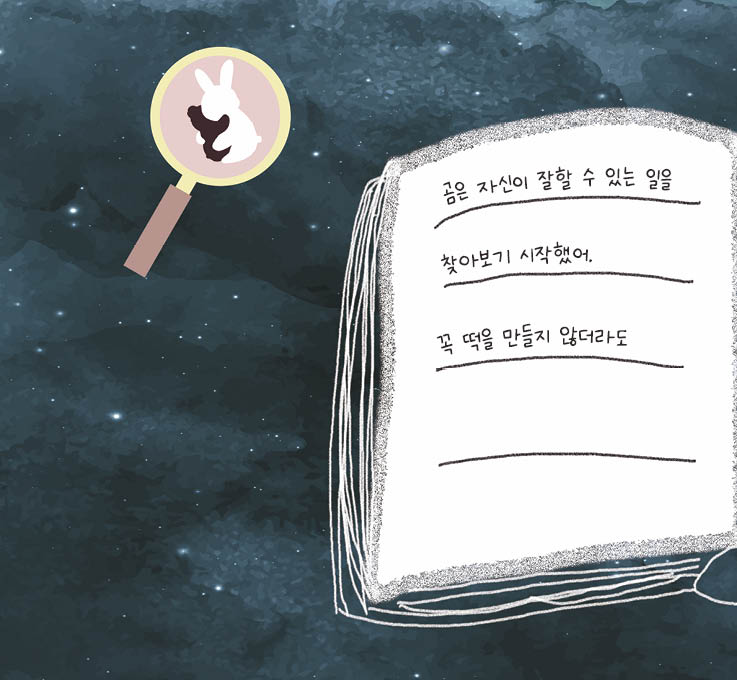 곰은 자신이 잘할 수 있는 일을
찾아보기 시작했어.
꼭 떡을 만들지 않더라도